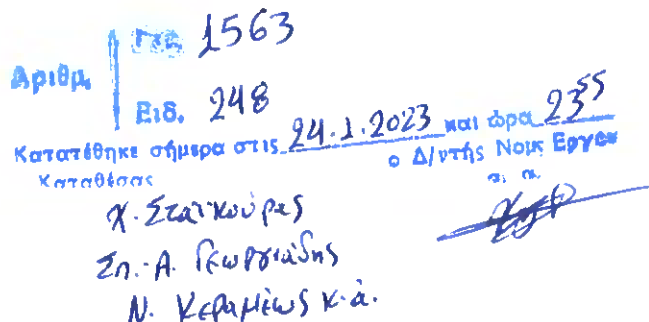 Αριθμ. Γεν. 1563
Ειδ. 248
Κατατέθηκε σήμερα στις 24.1.2023 και ώρα 23⁵⁵
Καταθέσας ο Δ/ντής Νομ. Έργου
α. α.
Χ. Σταϊκούρας
Σπ.-Α. Γεωργιάδης
Ν. Κεραμέως κ.ά.